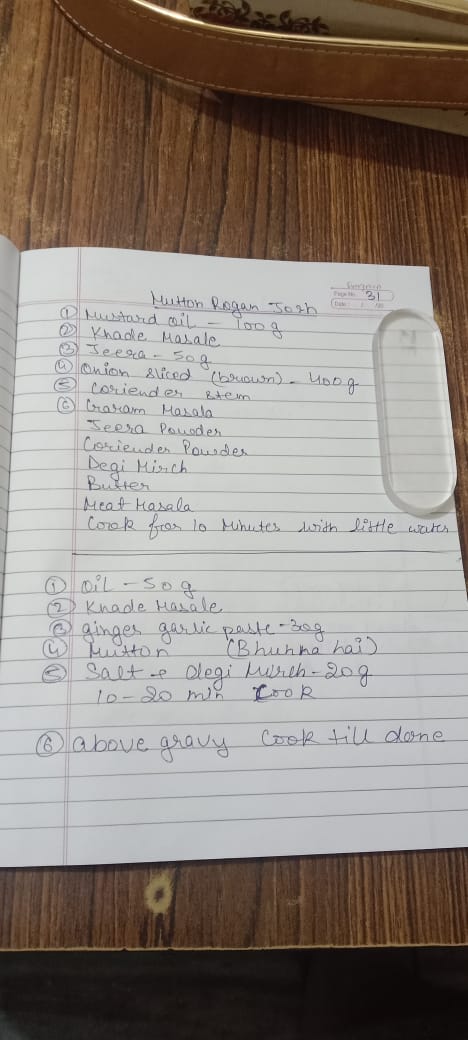 Page No. 31
Date
Mutton Rogan Josh
① Mustard oil - 100g
② Khade Masale
③ Jeera - 50g
④ Onion sliced (brown) - 400g
⑤ Coriender stem
⑥ Garam Masala
Jeera Powder
Coriender Powder
Degi Mirch
Butter
Meat Masala
Cook for 10 Minutes with little water
① Oil - 50g
② Khade Masale
③ ginger garlic paste - 30g
④ Mutton (Bhunna hai)
⑤ Salt + Degi Mirch - 20g
10-20 min Cook
⑥ above gravy Cook till done